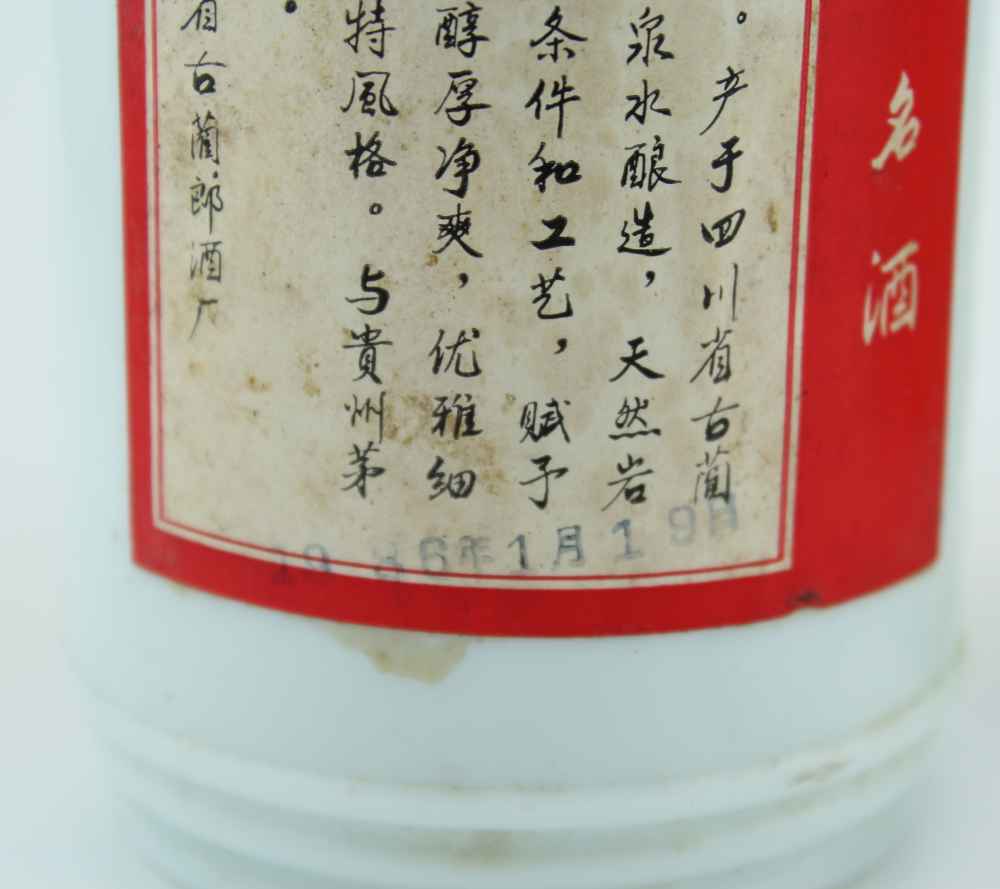 名酒
。产于四川省古蔺
泉水酿造，天然岩
条件和工艺，赋予
醇厚净爽，优雅细
特風格。与貴州茅
。
省古蔺郎酒厂
1986年1月19日